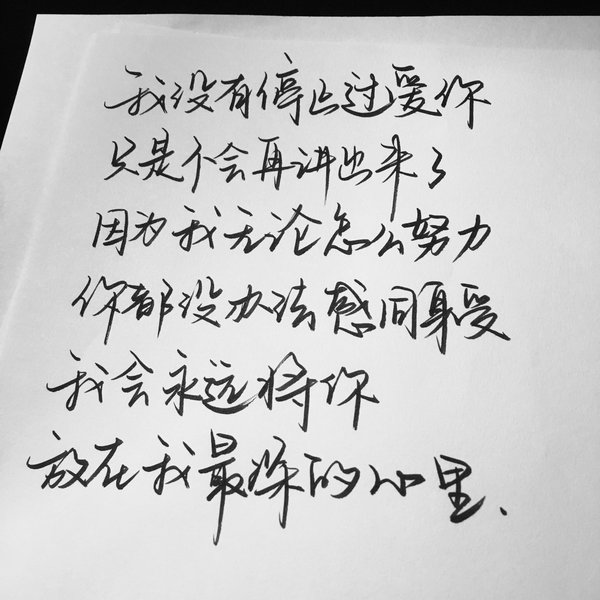 我没有停止过爱你
只是不会再讲出来了
因为我无论怎么努力
你都没办法感同身受
我会永远将你
放在我最深的心里、